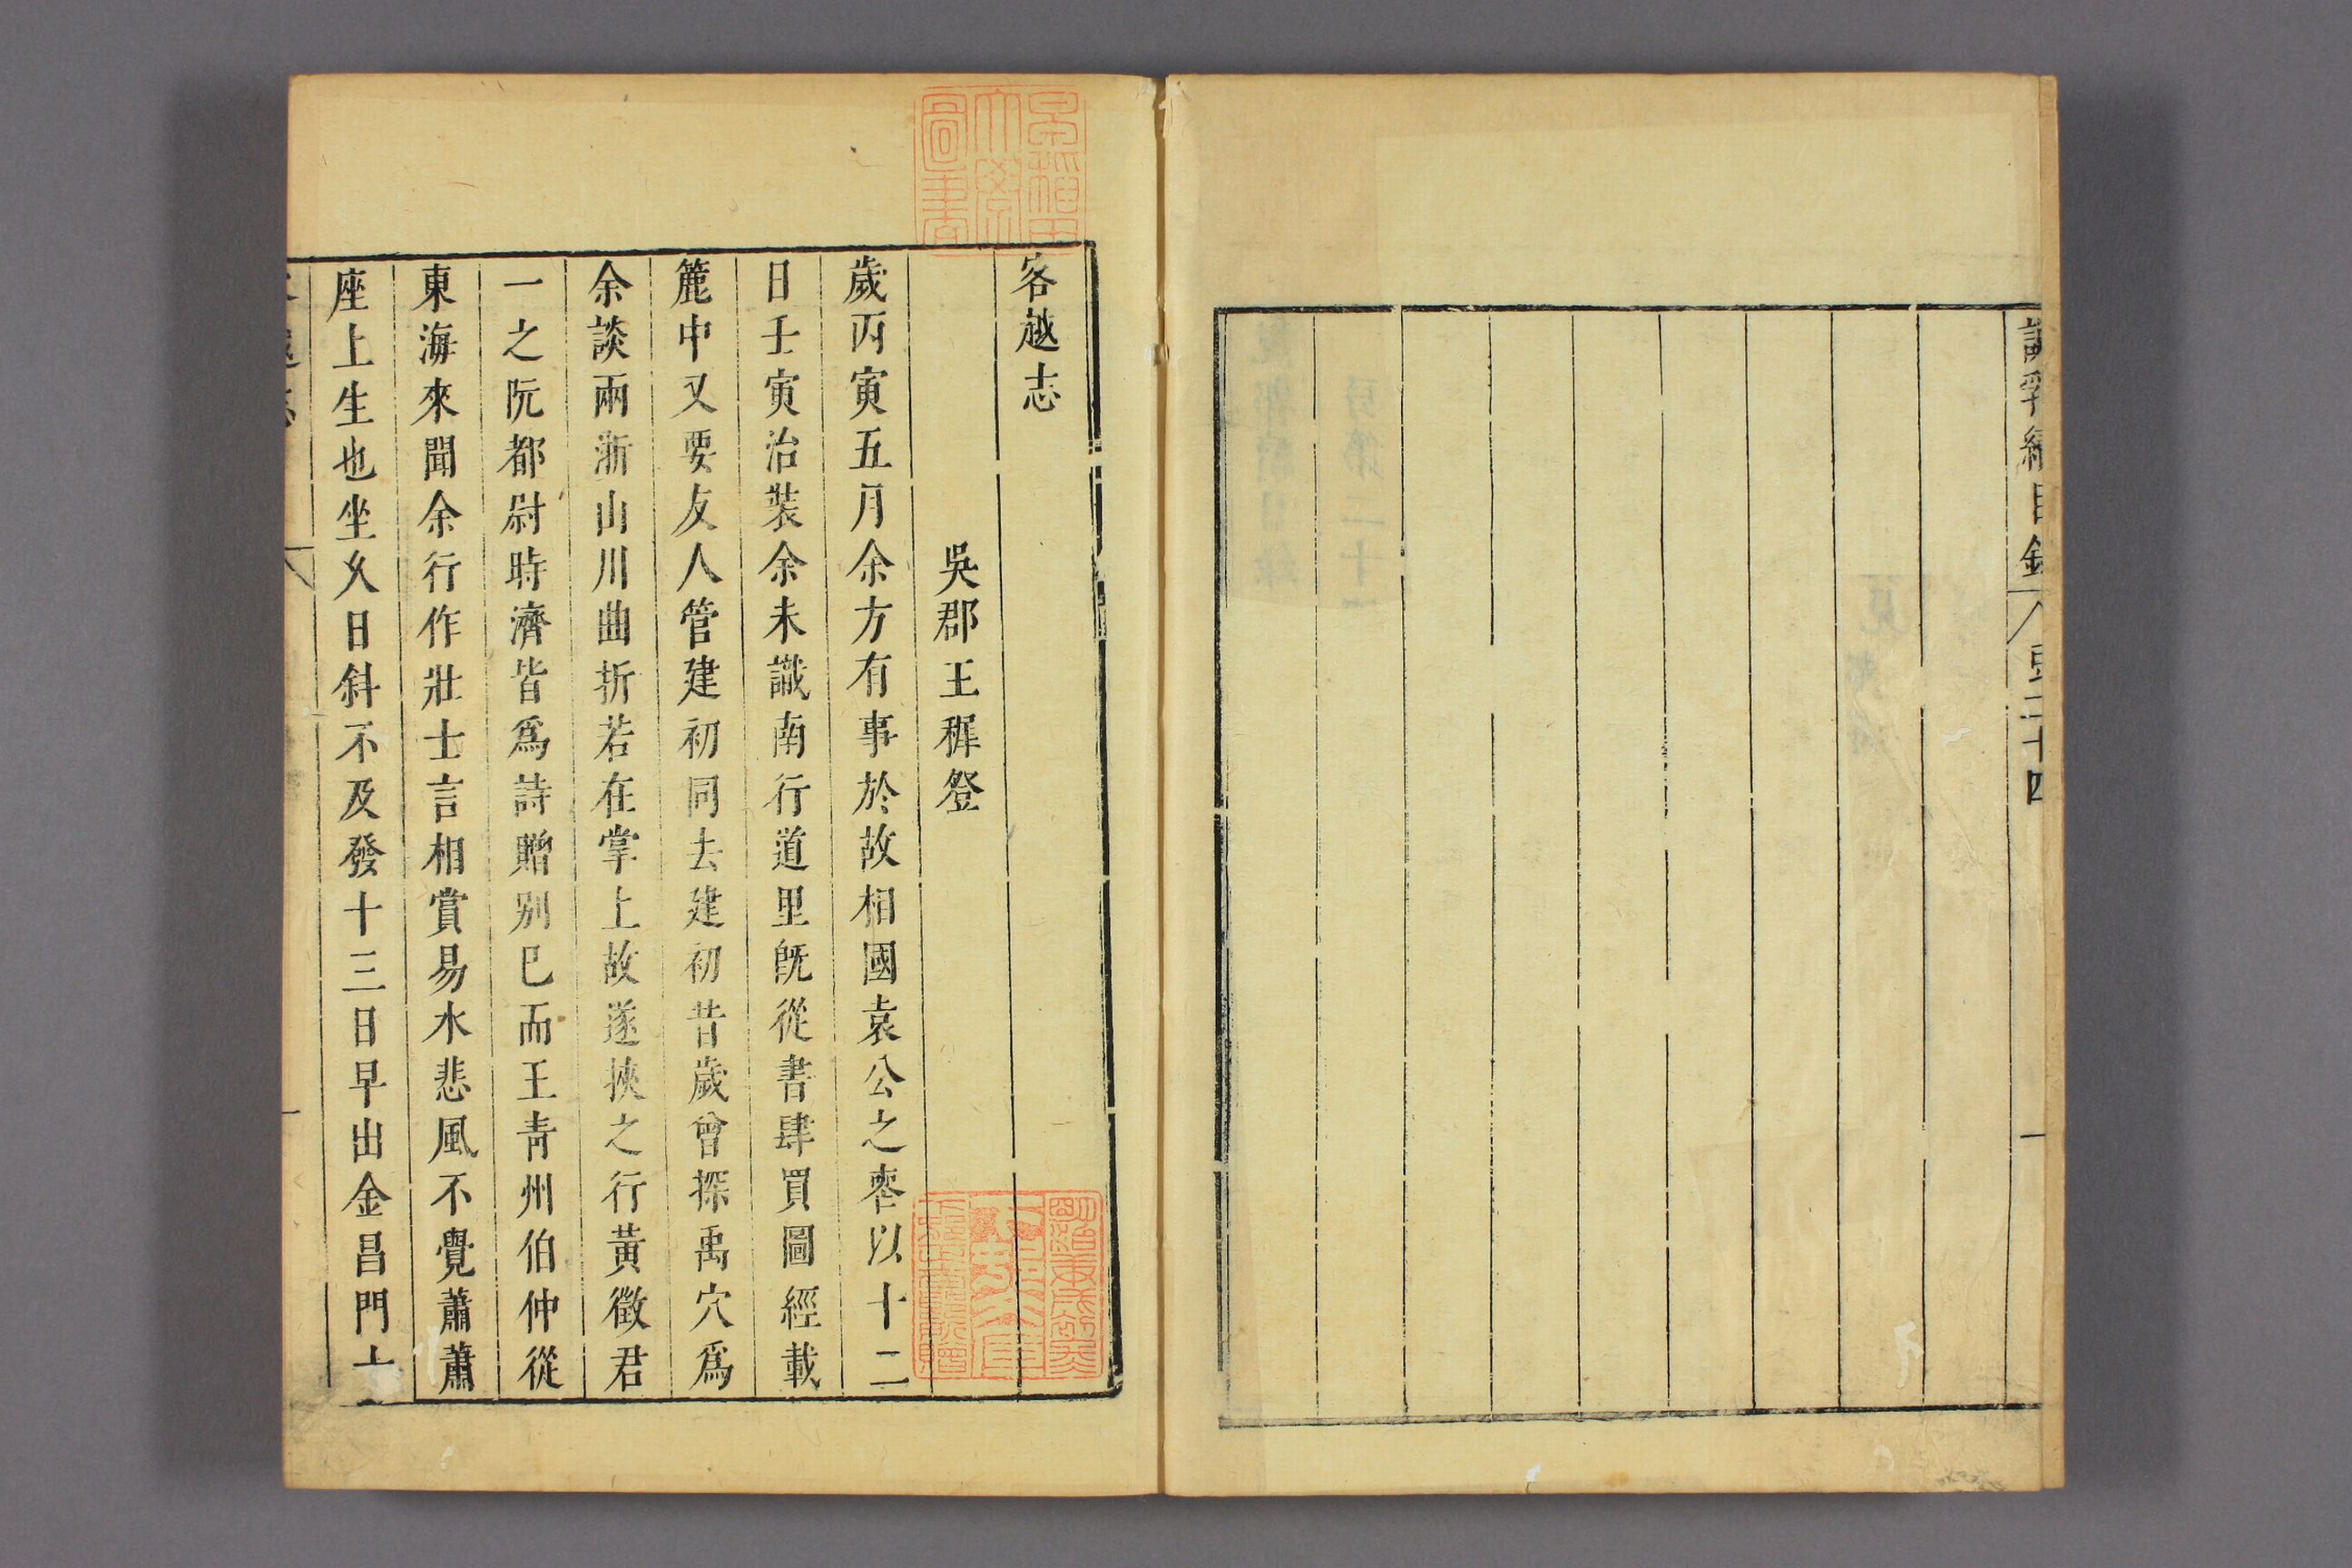 目
二十四
客越志
吳郡王穉登
歲丙寅五月余方有事於故相國袁公之塟以十二
日壬寅治裝余未識南行道里旣從書肆買圖經載
簏中又要友人管建初同去建初昔歲曾探禹穴爲
余談兩浙山川曲折若在掌上故遂挾之行黃徵君
一之阮都尉時濟皆爲詩贈別巳而王青州伯仲從
東海來聞余行作壯士言相賞易水悲風不覺蕭蕭
座上生也坐久日斜不及發十三日早出金昌門十
早稻田大學圖書